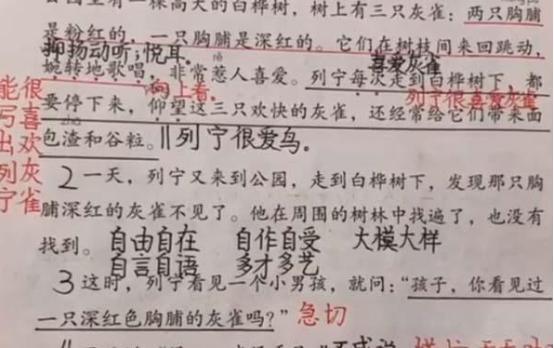 公园里有一棵高大的白桦树，树上有三只灰雀：两只胸脯
是粉红的，一只胸脯是深红的。它们在树枝间来回跳动，
抑扬动听，悦耳。
喜爱灰雀
婉转地歌唱，非常惹人喜爱。列宁每次走到白桦树下，都
向上看。
列宁很喜爱灰雀
要停下来，仰望这三只欢快的灰雀，还经常给它们带来面
包渣和谷粒。‖列宁很爱鸟。
能写出列宁
很喜欢灰雀
2一天，列宁又来到公园，走到白桦树下，发现那只胸
脯深红的灰雀不见了。他在周围的树林中找遍了，也没有
找到。自由自在 自作自受 大模大样
自言自语 多才多艺
3这时，列宁看见一个小男孩，就问：“孩子，你看见过
一只深红色胸脯的灰雀吗？”急切